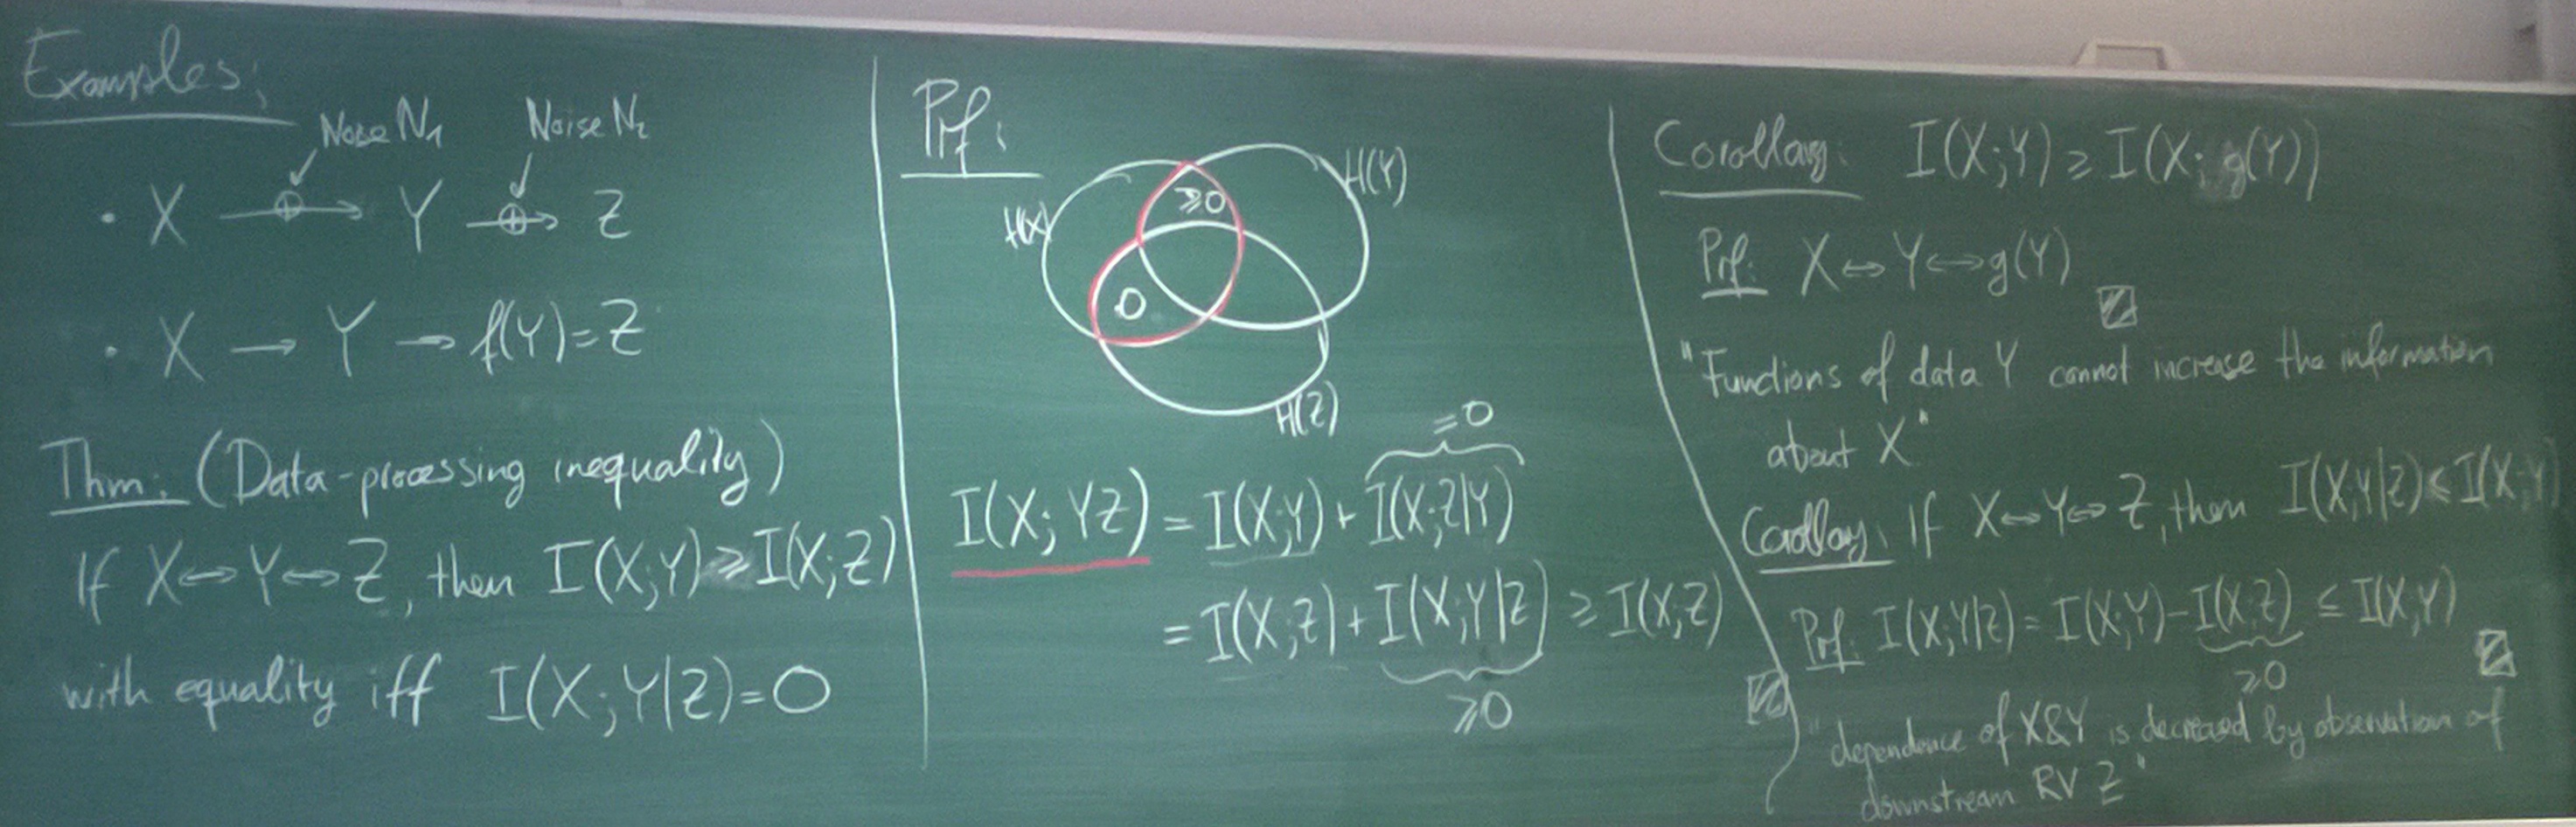 Examples:
Noise N₁ Noise N₂
• X → Y → Z
• X → Y → f(Y)=Z
Thm: (Data-processing inequality)
If X↔Y↔Z, then I(X;Y) ≥ I(X;Z)
with equality iff I(X;Y|Z)=0
Prf:
H(X)
H(Y)
≥0
0
H(Z)
=0
I(X;YZ) = I(X;Y) + I(X;Z|Y)
= I(X;Z) + I(X;Y|Z) ≥ I(X;Z)
≥0
Corollary: I(X;Y) ≥ I(X;g(Y))
Prf: X↔Y↔g(Y)
"Functions of data Y cannot increase the information
about X"
Corollary: If X↔Y↔Z, then I(X;Y|Z) ≤ I(X;Y)
Prf: I(X;Y|Z) = I(X;Y) - I(X;Z) ≤ I(X;Y)
≥0
"dependence of X&Y is decreased by observation of
downstream RV Z"